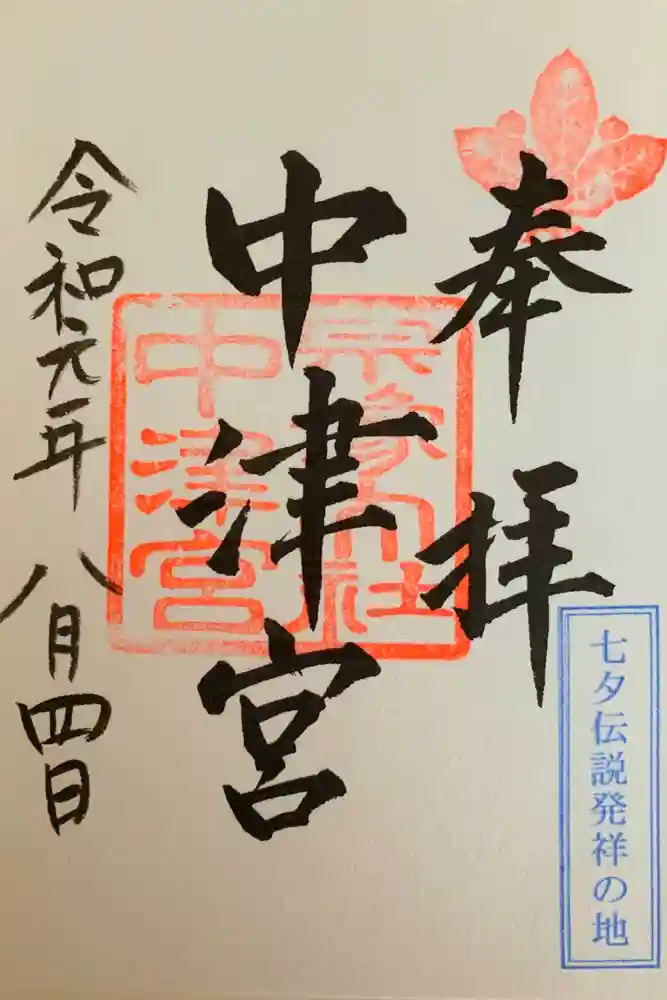 奉拝
七夕伝説発祥の地
中津宮
宗像大社
中津宮
令和元年 八月四日